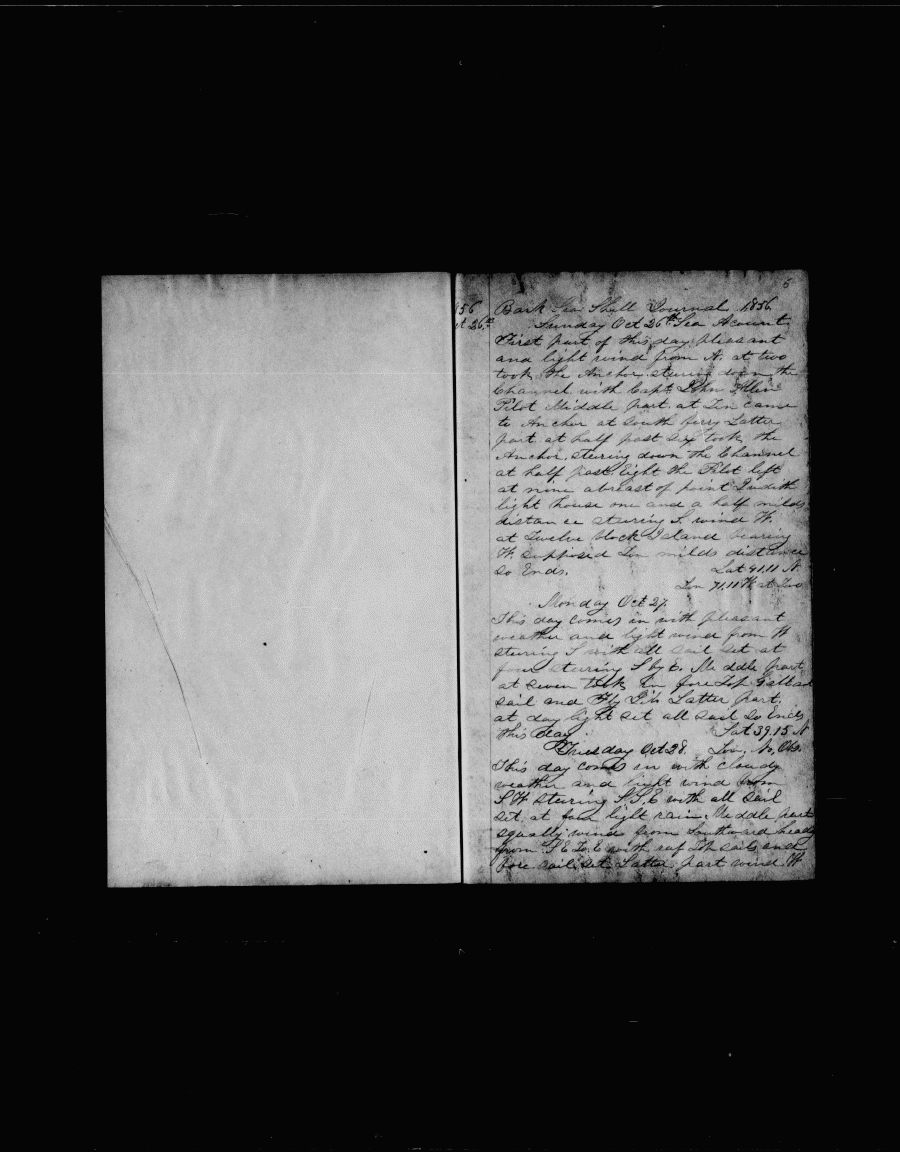 6
Bark Sea Shell Journal 1856
1856
Oct 26th
Sunday Oct 26th Sea Acount
First part of this day pleasant
and light wind from N. at two
took the Anchor steering down the
Channel with Capt John Allin
Pilot Middle part at Ten came
to Anchor at South ferry Latter
part at half past Six took the
Anchor, steering down the Channel
at half past Eight the Pilot left
at nine abreast of point Judith
light house one and a half milds
distance steuring S. wind W.
at Twelve block Island bearing
W. supposed Ten milds distance
So Ends. Lat 41,11 N
Lon 71,11 W at Two
Monday Oct 27
This day comes in with pleasant
weather and light wind from W
steuring S with all sail set at
four steuring S by E. Meddle part
at seven took in fore Top Gallant
sail and Fly Jib Latter part.
at day light set all sail So Ends
this day. Lat 39,15 N
Tuesday Oct 28. Lon, No, Obs.
This day coms in with cloudy
weather and light wind from
S W steuring S.S.E with all sail
set. at four light rain. Meddle part
squally wind from Southward heading
from S E to E with ref Top sails and
fore sail set Latter part wind W